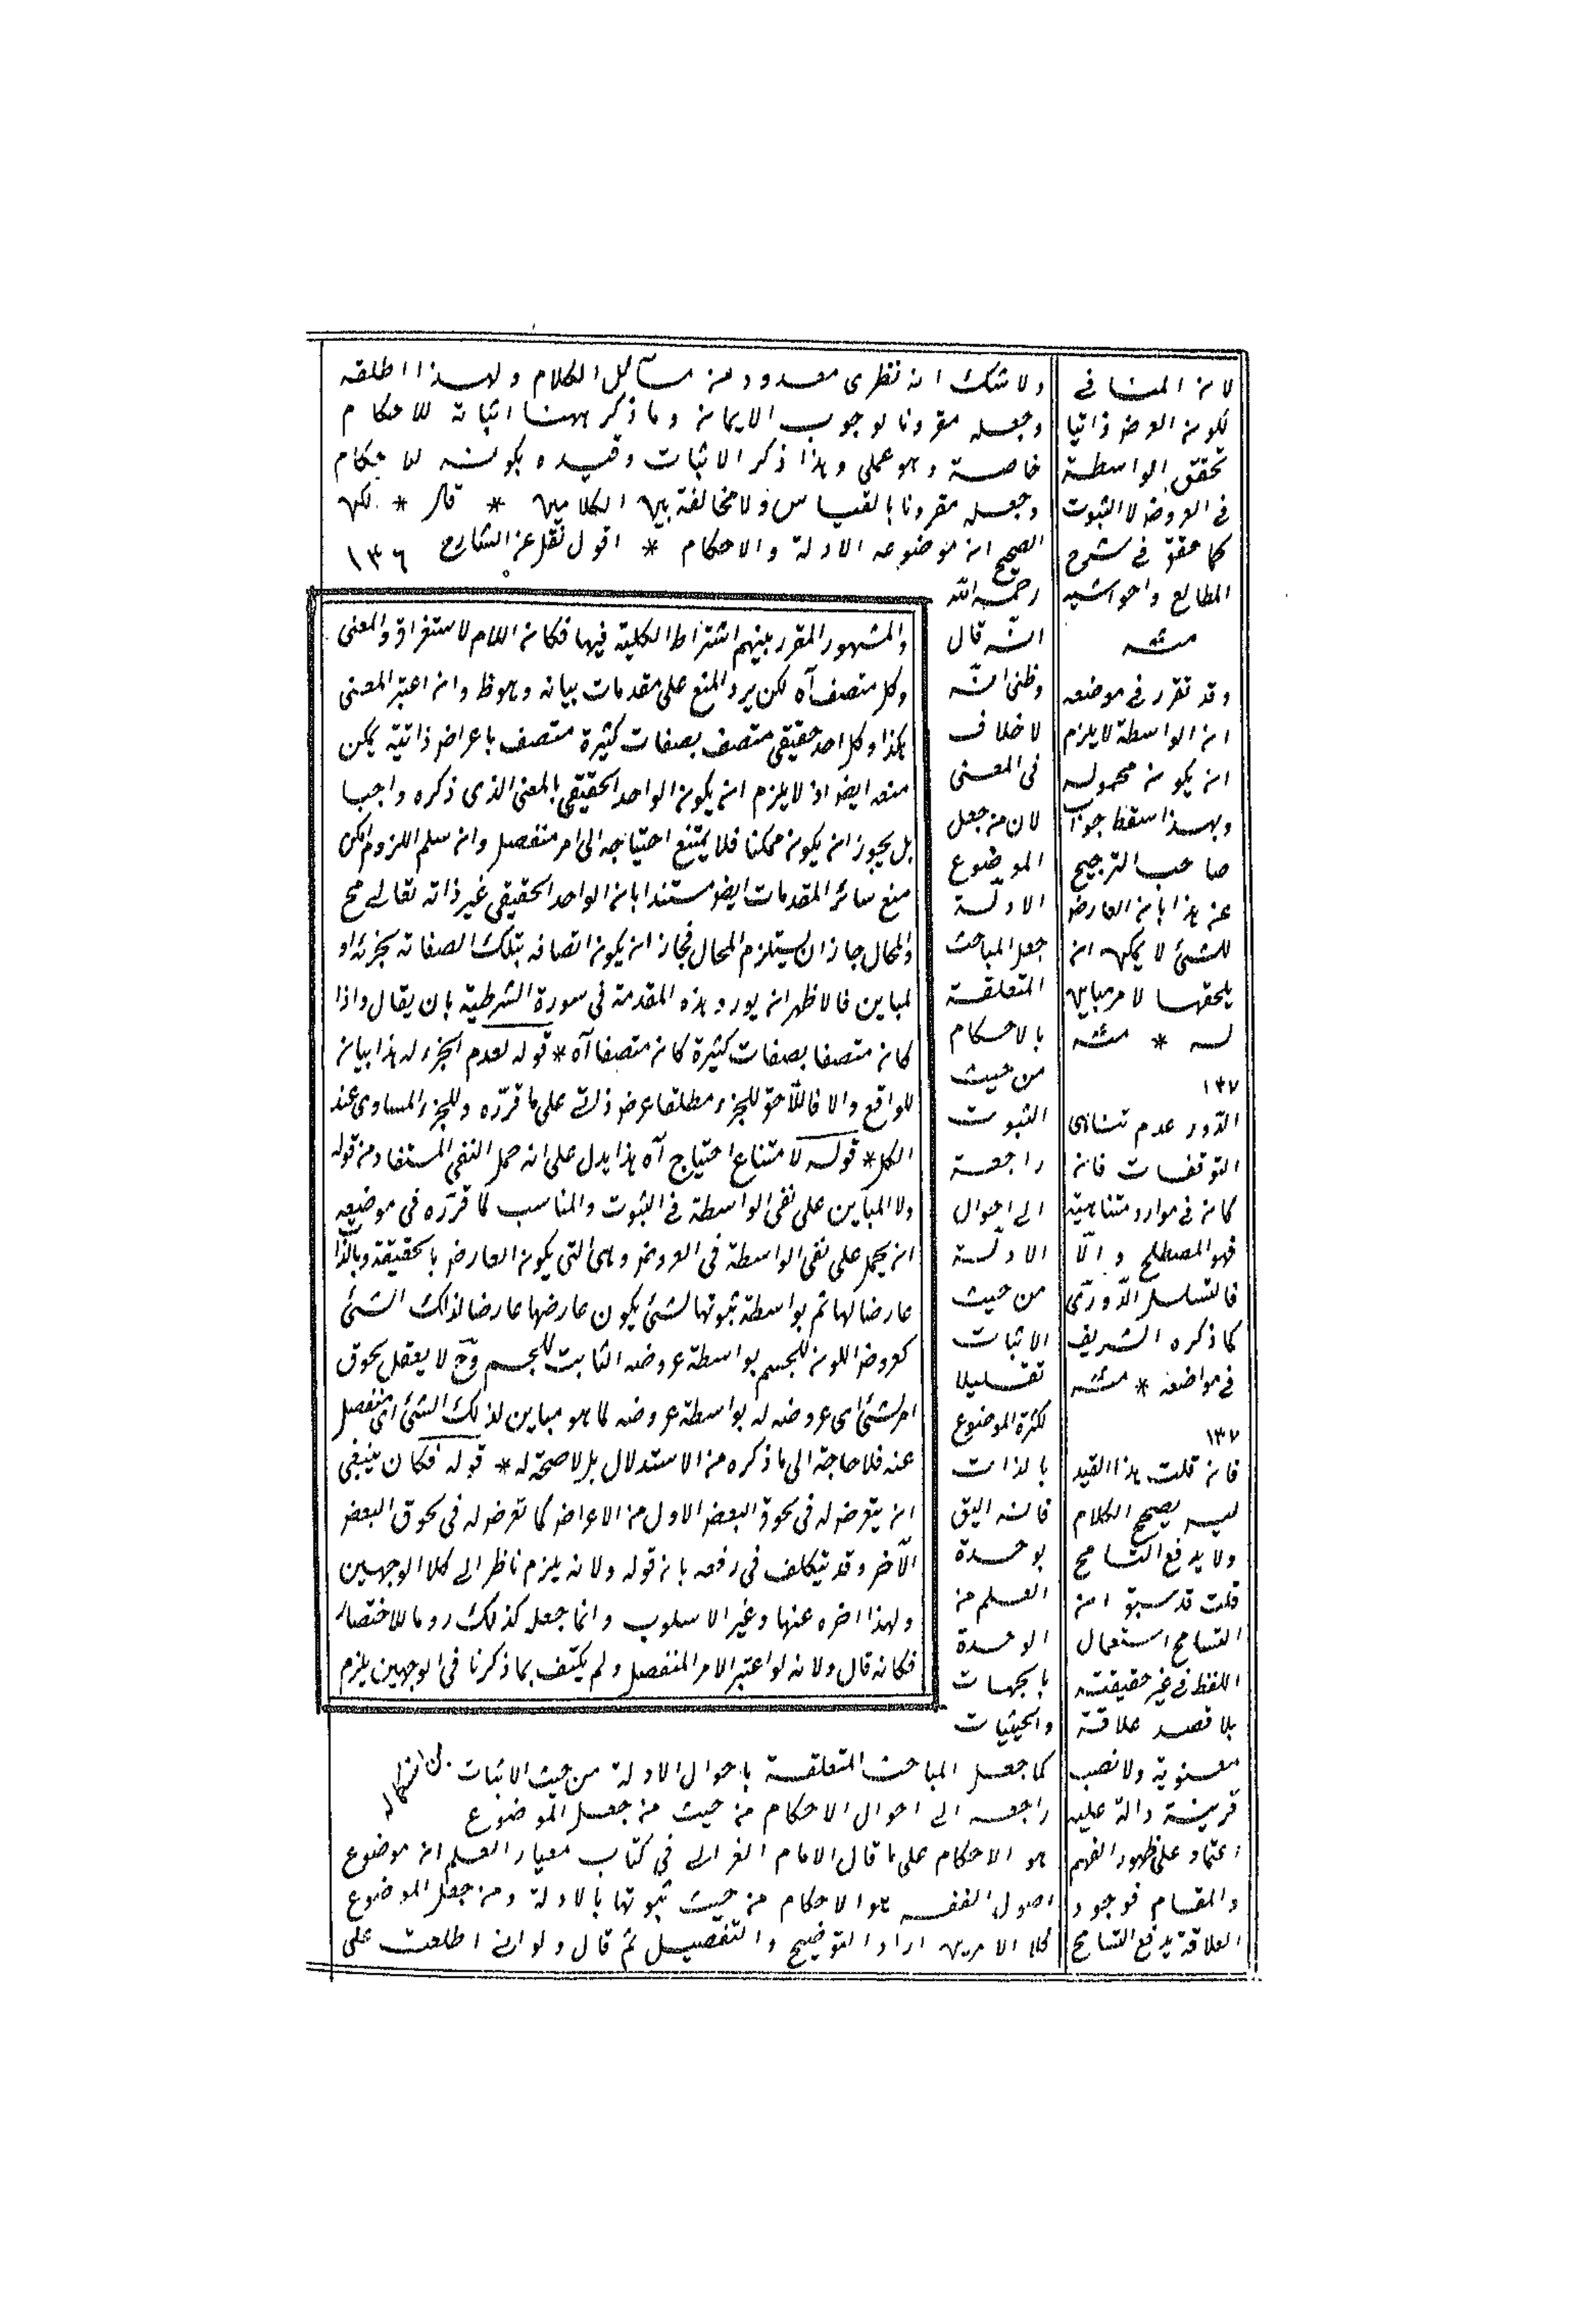 ولا شك انه نظرى معدود من مسائل الكلام ولهذا اطلقه
وجعله مقرونا لوجوب الايمان وما ذكر ههنا اثباته للاحكام
خاصة وهو عملى وهذا ذكر الاثبات وقيده بكونه للاحكام
وجعله مقرونا بالقياس ولا مخالفة بين الكلامين * قال * لكن
الصحيح ان موضوعه الادلة والاحكام * اقول نقل عن الشارح ١٣٦
رحمه الله
انه قال
وظنى انه
لا خلاف
فى المعنى
لان من جعل
الموضوع
الادلة
جعل المباحث
المتعلقة
بالاحكام
من حيث
الثبوت
راجعة
الى احوال
الادلة
من حيث
الاثبات
تقليلا
لكثرة الموضوع
بالذات
فانه اليق
بوحدة
العلم من
الوحدة
بالجهات
والحيثيات
كما جعل المباحث المتعلقة باحوال الادلة من حيث الاثبات
راجعه الى احوال الاحكام من حيث من جعل الموضوع
هو الاحكام على ما قال الامام الغزالى فى كتاب معيار العلم ان موضوع
اصول الفقه هو الاحكام من حيث ثبوتها بالادلة ومن جعل الموضوع
كلا الامرين اراد التوضيح والتفصيل ثم قال ولو انى اطلعت على
والمشهور المقرر بينهم اشتراط الكلية فيها فكان اللام لاستغراق والمعنى
وكل متصف آه لكن يرد المنع على مقدمات بيانه وهو ظ وان اعتبر المعنى
هكذا وكل احد حقيقى متصف بصفات كثيرة متصف باعراض ذاتية يمكن
منعه ايضا اذ لا يلزم ان يكون الواحد الحقيقى بالمعنى الذى ذكره واجبا
بل يجوز ان يكون ممكنا فلا يمتنع احتياجه الى امر منفصل وان سلم اللزوم لكن
منع سائر المقدمات ايضو مستندا بان الواحد الحقيقى غير ذاته تعالى مح
والمحال جاز ان يستلزم المحال فجاز ان يكون اتصافه بتلك الصفات بجزئه او
لمباين فالاظهر ان يورد هذه المقدمة فى سورة الشرطية بان يقال واذا
كان متصفا بصفات كثيرة كان متصفا آه * قوله لعدم الجزء له هذا بيان
للواقع والا فاللاحق للجزء مطلقا عرض ذاتى على ما قرره وللجزء المساوى عند
الكل * قوله لامتناع احتياج آه هذا يدل على انه حمل النفى المستفاد من قوله
ولا المباين على نفى الواسطة فى الثبوت والمناسب لما قرره فى موضعه
ان يحمل على نفى الواسطة فى العروض وهى التى يكون العارض بالحقيقة وبالذا
عارضا لها ثم بواسطة ثبوتها لشئ يكون عارضها عارضا لذلك الشئ
كعروض اللون للجسم بواسطة عروضه الثابت للجسم وح لا يعقل لحوق
امر لشئ اى عروضه له بواسطة عروضه لما هو مباين لذلك الشئ اى منفصل
عنه فلا حاجة الى ما ذكره من الاستدلال بل لا صحة له * قوله فكان ينبغى
ان يتعرض له فى لحوق البعض الاول من الاعراض كما تعرض له فى لحوق البعض
الآخر وقد يتكلف فى رفعه بان قوله ولانه يلزم ناظر الى كلا الوجهين
ولهذا اخره عنها وغير الاسلوب وانما جعل كذلك روما للاختصار
فكانه قال ولانه لو اعتبر الامر المنفصل ولم يكتف بما ذكرنا فى الوجهين يلزم
لان المنافى
لكون العرض ذاتيا
تحقق الواسطة
فى العروض لا الثبوت
كما حقق فى شرح
المطالع وحواشيه
منه
وقد تقرر فى موضعه
ان الواسطة لا يلزم
ان يكون محموله
وبهذا سقط جواب
صاحب الترجيح
عن هذا بان العارض
للشئ لا يمكن ان
يلحقها لامر مباين
له * منه
١٣٧
الدور عدم تناهى
التوقفات فان
كان فى موارد متناهية
فهو المصطلح والا
فالتسلسل الدورى
كما ذكره الشريف
فى مواضعه * منه
١٣٧
فان قلت هذا القيد
ليس يصحح الكلام
ولا يدفع التسامح
قلت قد سبق ان
التسامح استعمال
اللفظ فى غير حقيقته
بلا قصد علاقة
معنوية ولا نصب
قرينة دالة عليه
اعتماد على ظهور الفهم
والمقام فوجود
العلاقة يدفع التسامح